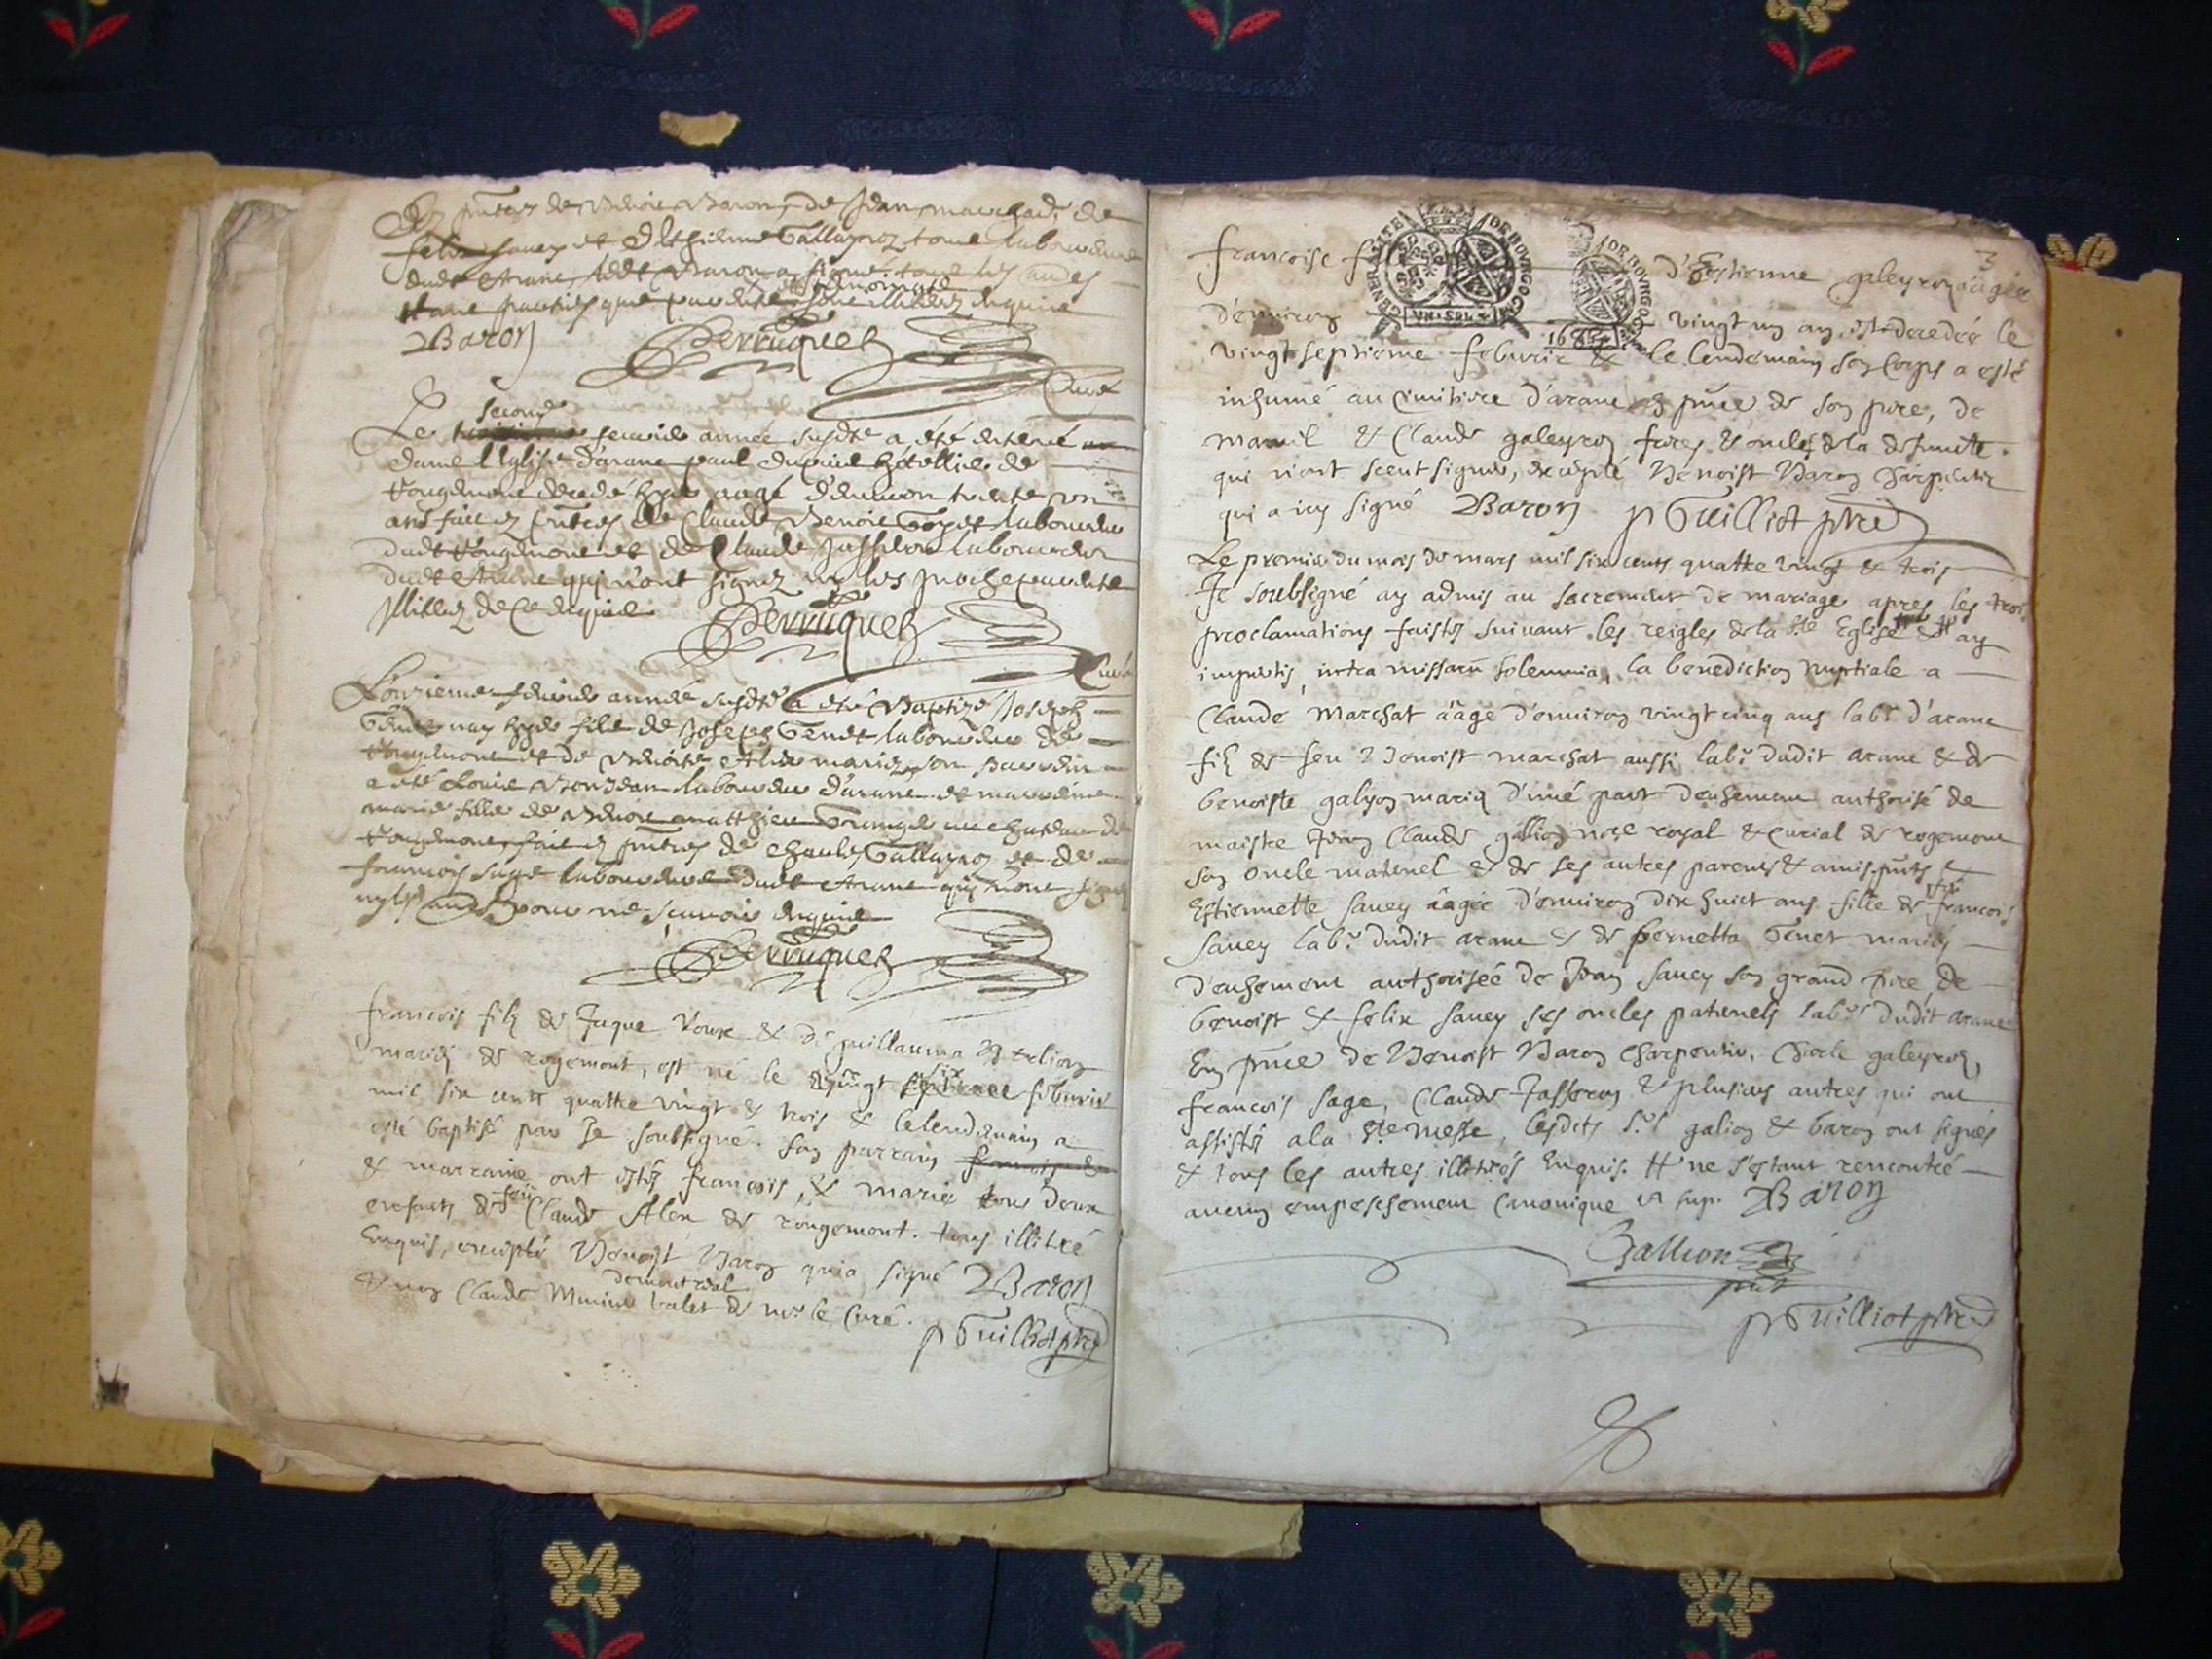 En pñces de Benoit Baron, de Jean marchad, de
felix sauey et d'Ethienne Gallayroz tous laboureurs
dudt Arane, ledt Baron a signé, tous les autres
illitérez enquis
Baron Perruquet
Curé
second
Le feurier année susdte a été enterré
dans l'Eglise d'arane paul
Rougemont décédé hyer aagé d'enuiron trente
ans fait en pñces de Claude Benoit laboureur
dudt Rougemont et de Claude Jasseron laboureur
dudt Arane qui n'ont signez ny les proches parents
illitérez de ce enquis Perruquet
Curé
L'onzieme feurier année susdte a été Baptizé Joseph
Genet nay hyer fils de Joseph Genet laboureur de
Rougemont et de Benoite mariez, son parrein
a été Louis Bondean laboureur d'arane et marreine
marie fille de Benoit matthieu Grange de
Rougemont, fait en pñces de Charles Gallayroz et de
francois sage laboureurs dudt Arane qui n'ont signez
ny les autres pour ne scauoir enquis
Perruquet
francois filz de Jaque Roux & de guillauma Berlioz
mariez de rogemont, est né le vingt six feburier
mil six cents quattre vingt & trois & le lendemain a
esté baptisé par Je soubsigné. son parrain
& marraine ont estéz francois, & marie tous deux
enfants de feü Claude Alex de rougemont. tous illitré
Enquis, excepté Benoist Baron qui a signé Baron
demontreal
& moy Claude Munier valet de mr. le Curé.
p Guilliot ptre
3
francoise fille d'Estienne galeyron aagée
GENERALITE DE BOVRGOGNE VN. SOL
DE BOVRGO
168
d'enuiron vingt un an, est decedée le
vingt septieme feburier & le lendemain son corps a esté
inhumé au Cimitiere d'arane en pñce de son pere, de
mamil & Claude galeyron freres & oncles de la defuncte.
qui n'ont sceut signer, excepté Benoist Baron Charpentier
qui a icy signé Baron p Guilliot ptre
Le premier du mois de mars mil six cents quattre vingt & trois
Je soubsigné ay admis au sacrement de mariage apres les trois
proclamations faistes suiuant les reigles de la Ste Eglise & ay
impartis, intra missarũ solemnia, la benediction nuptiale a
Claude Marchat aagé d'enuiron vingt cinq ans labr. d'arane
filz de feu Benoist marchat aussi labr. dudit arane & de
benoiste galyon mariez d'une part deuhement authorisé de
maistre Jean Claude gallion nore royal & curial de rogemont
son oncle maternel & de ses autres parents & amis pñts &
Estiennette sauey aagée d'enuiron dix huict ans fille de feü francois
sauey labr. dudit arane & de pernetta Genet mariez
deuhement authorisée de Jean sauey son grand pere de
benoist & felix sauey ses oncles paternels labrs. dudit arane
En pñce de Benoist Baron charpentier, Charle galeyron,
francois sage, Claude Jasseron & plusieurs autres qui ont
assistéz a la Ste messe, lesdits Srs galion & baron ont signés
& tous les autres illiterés Enquis. # ne s'estant rencontré
aucun empeschement Canonique ut sup. Baron
Gallion
pñt
p Guilliot ptre